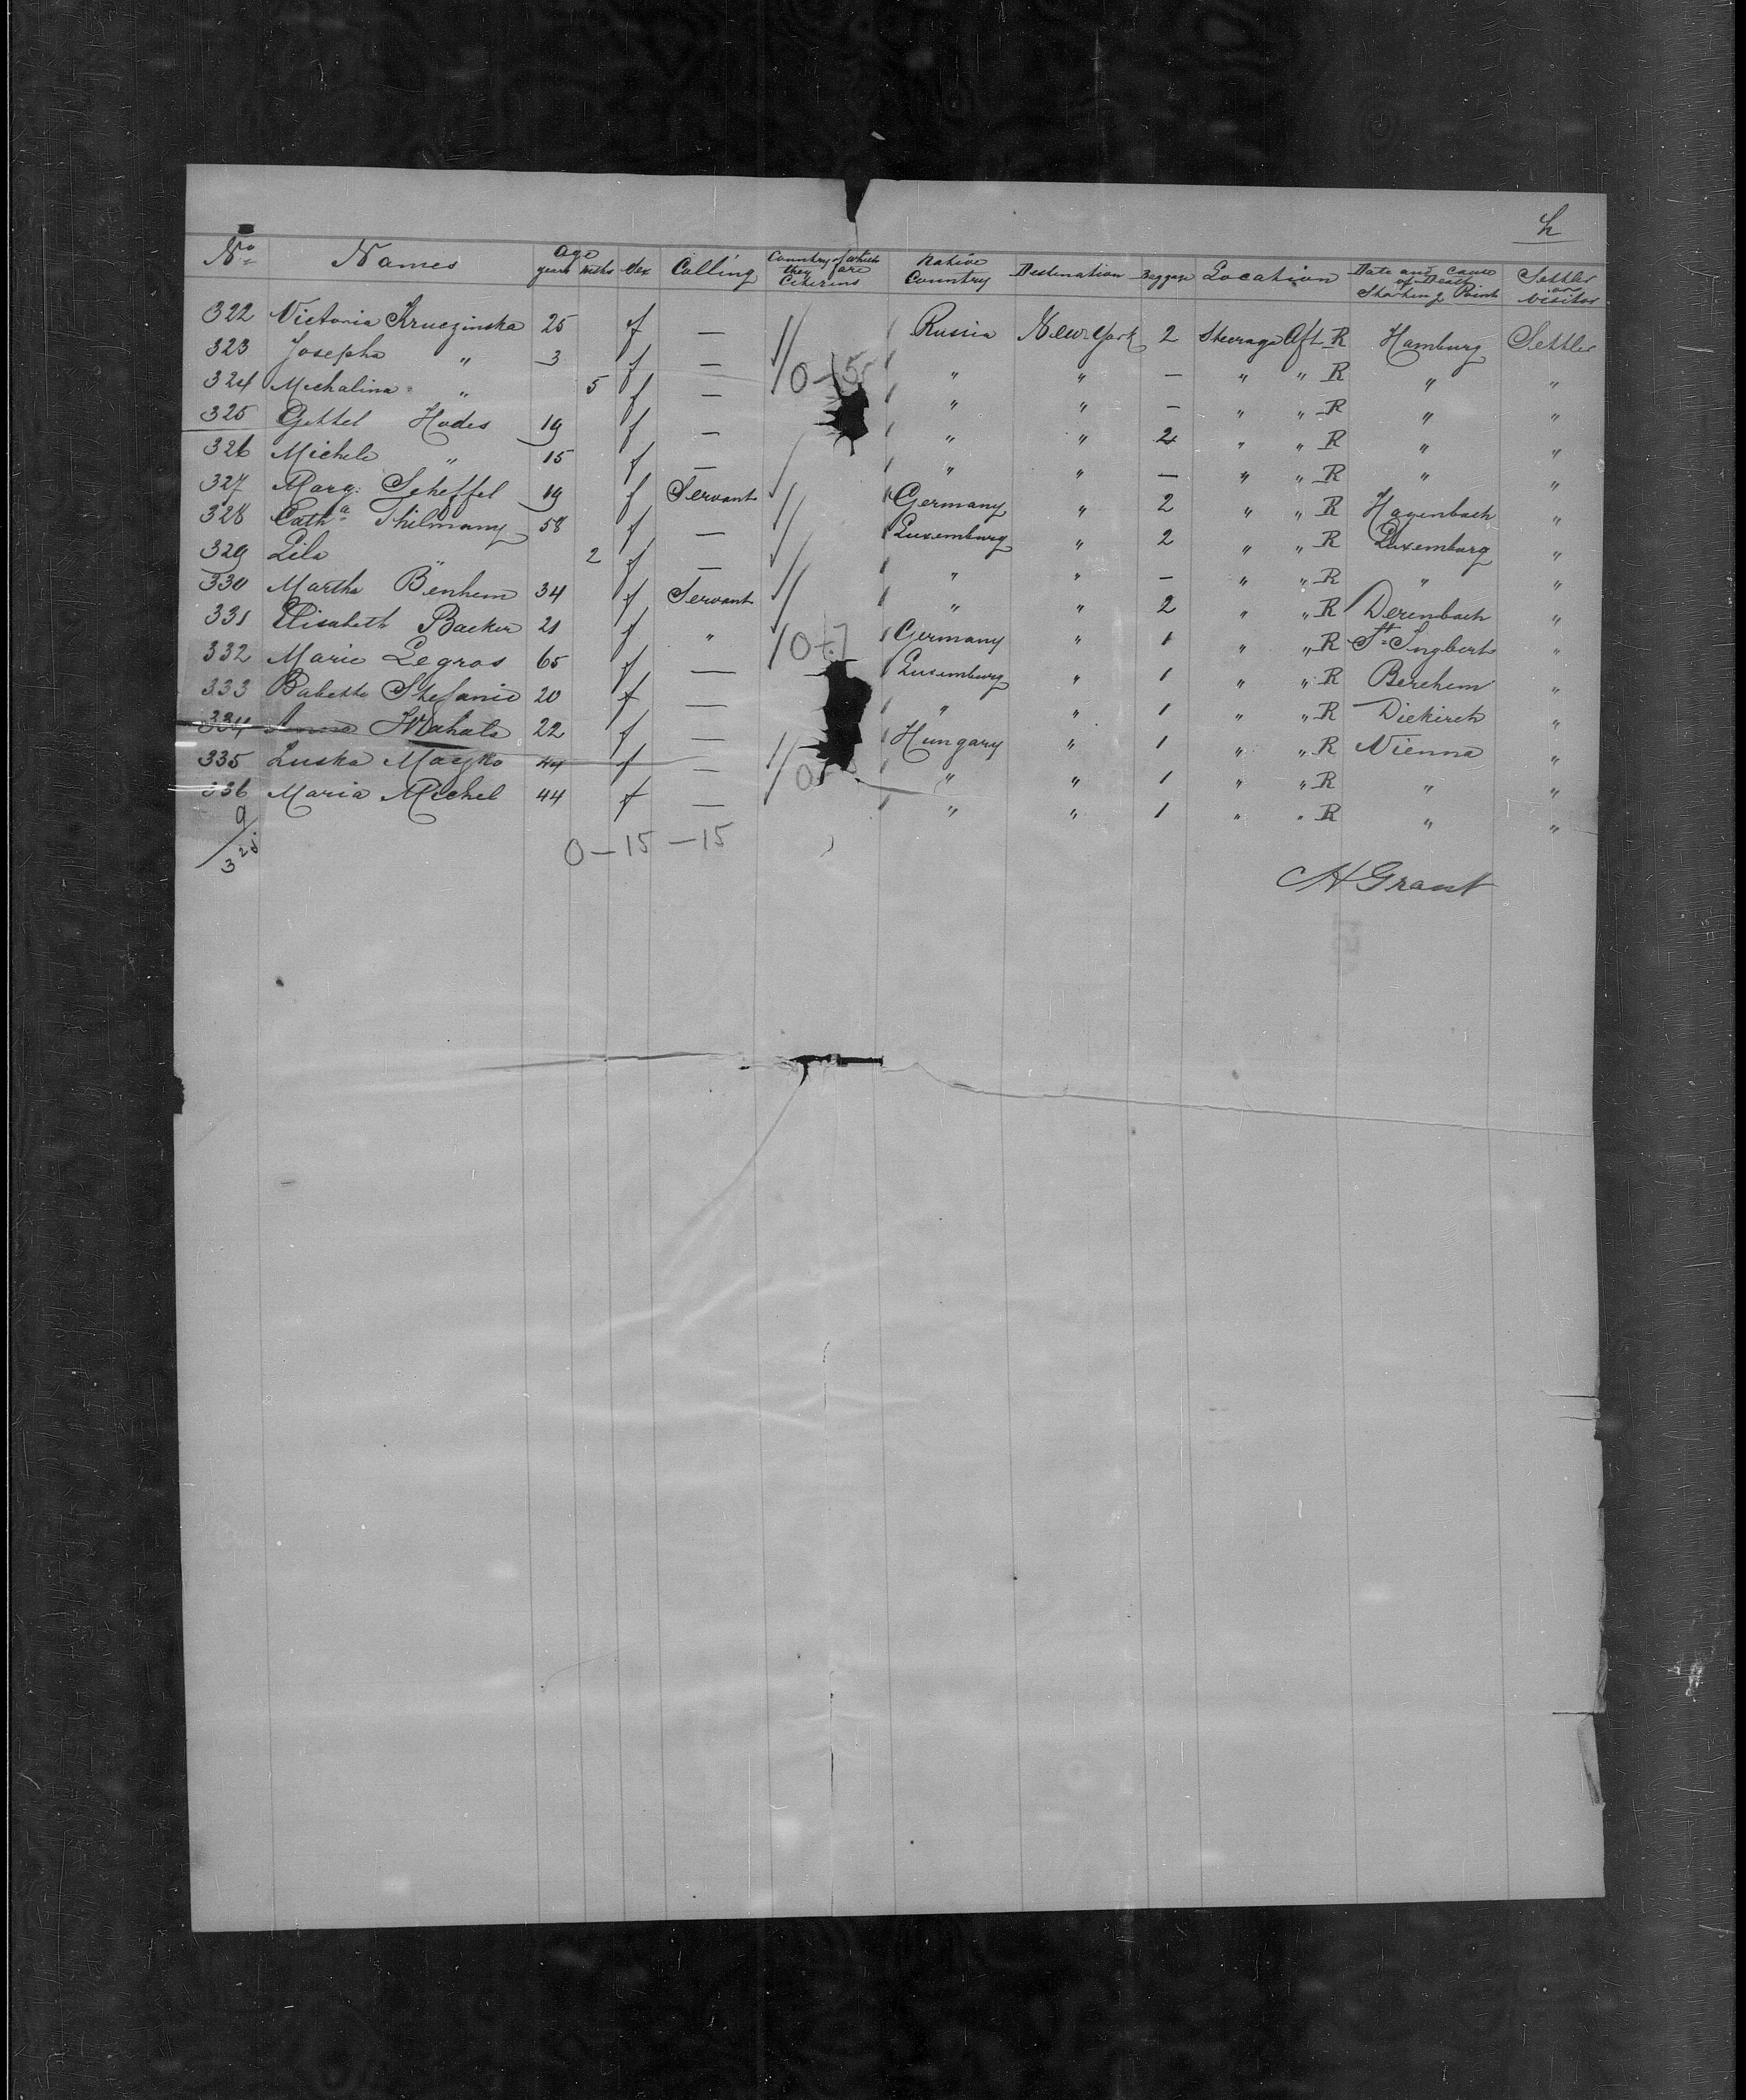 h
No Names Age years mths Sex Calling Country of which they are Citizens Native Country Destination Baggage Location Date and Cause of Death Starting Point Settler or Visitor
322 Victoria Kruczinska 25 f — Russia New York 2 Steerage Aft R Hamburg Settler
323 Josepha " 3 f — " " — " " R " "
324 Michalina " 5 f — " " — " " R " "
325 Gettel Hodes 19 f — " " 2 " " R " "
326 Michele " 15 f — " " — " " R " "
327 Marg: Scheffel 19 f Servant Germany " 2 " " R Hagenbach "
328 Cath:a Thilmany 58 f — Luxemburg " 2 " " R Luxemburg "
329 Lila " 2 f — " " — " " R " "
330 Martha Benhem 34 f Servant " " 2 " " R Derenbach "
331 Elisabeth Backer 21 f " Germany " 1 " " R St Ingbert "
332 Marie Legros 65 f — Luxemburg " 1 " " R Berchem "
333 Babette Stefanie 20 f — " " 1 " " R Diekirch "
334 Anna Wahala 22 f — Hungary " 1 " " R Vienna "
335 Luska Mayko 44 f — " " 1 " " R " "
336 Maria Michel 44 f — " " 1 " " R " "
0 — 15 — 15
A Grant